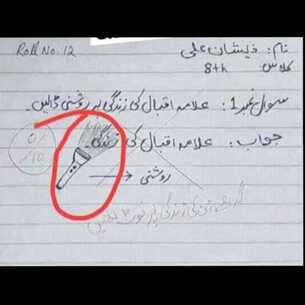 Roll No. 12
نام: ذیشان علی
کلاس 8th
سوال نمبر 1: علامہ اقبال کی زندگی پر روشنی ڈالیں۔
جواب: علامہ اقبال کی زندگی۔
روشنی
10